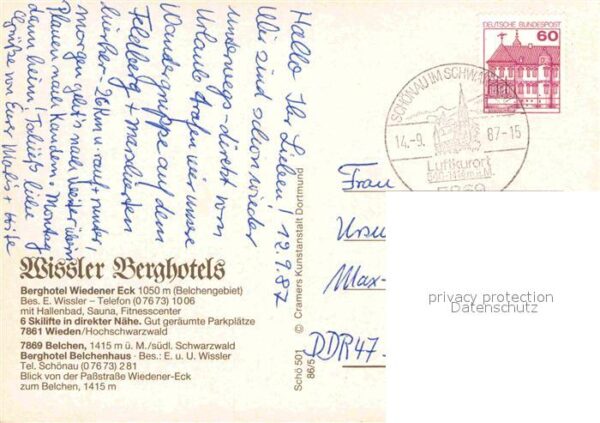 Hallo Ihr Lieben! 12.9.87
Wir sind schon wieder
unterwegs - direkt vom
Urlaub trafen wir unsere
Wandergruppe auf dem
Feldberg + marschierten
hierher - 26 Km u. rauf, runter,
morgen geht's nach weiter über
nach Kandern. Montag
dann heim! Tschüß liebe
Grüße von Eurer
Wissler Berghotels
Berghotel Wiedener Eck 1050 m (Belchengebiet)
Bes. E. Wissler – Telefon (0 76 73) 10 06
mit Hallenbad, Sauna, Fitnesscenter
6 Skilifte in direkter Nähe. Gut geräumte Parkplätze
7861 Wieden/Hochschwarzwald
7869 Belchen, 1415 m ü. M./südl. Schwarzwald
Berghotel Belchenhaus · Bes.: E. u. U. Wissler
Tel. Schönau (0 76 73) 2 81
Blick von der Paßstraße Wiedener-Eck
zum Belchen, 1415 m
Schö 501 © Cramers Kunstanstalt Dortmund
86/5
DEUTSCHE BUNDESPOST
60
SCHÖNAU IM SCHW
14.-9. 87-15
Luftkurort
7869
Frau
Max-
DDR 47-
privacy protection
Datenschutz